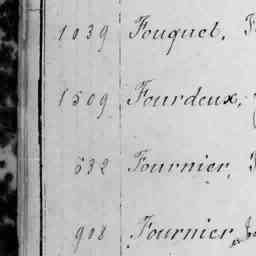 1039 Fouquet,
1509 Fourdeux,
532 Fournier,
908 Fournier,